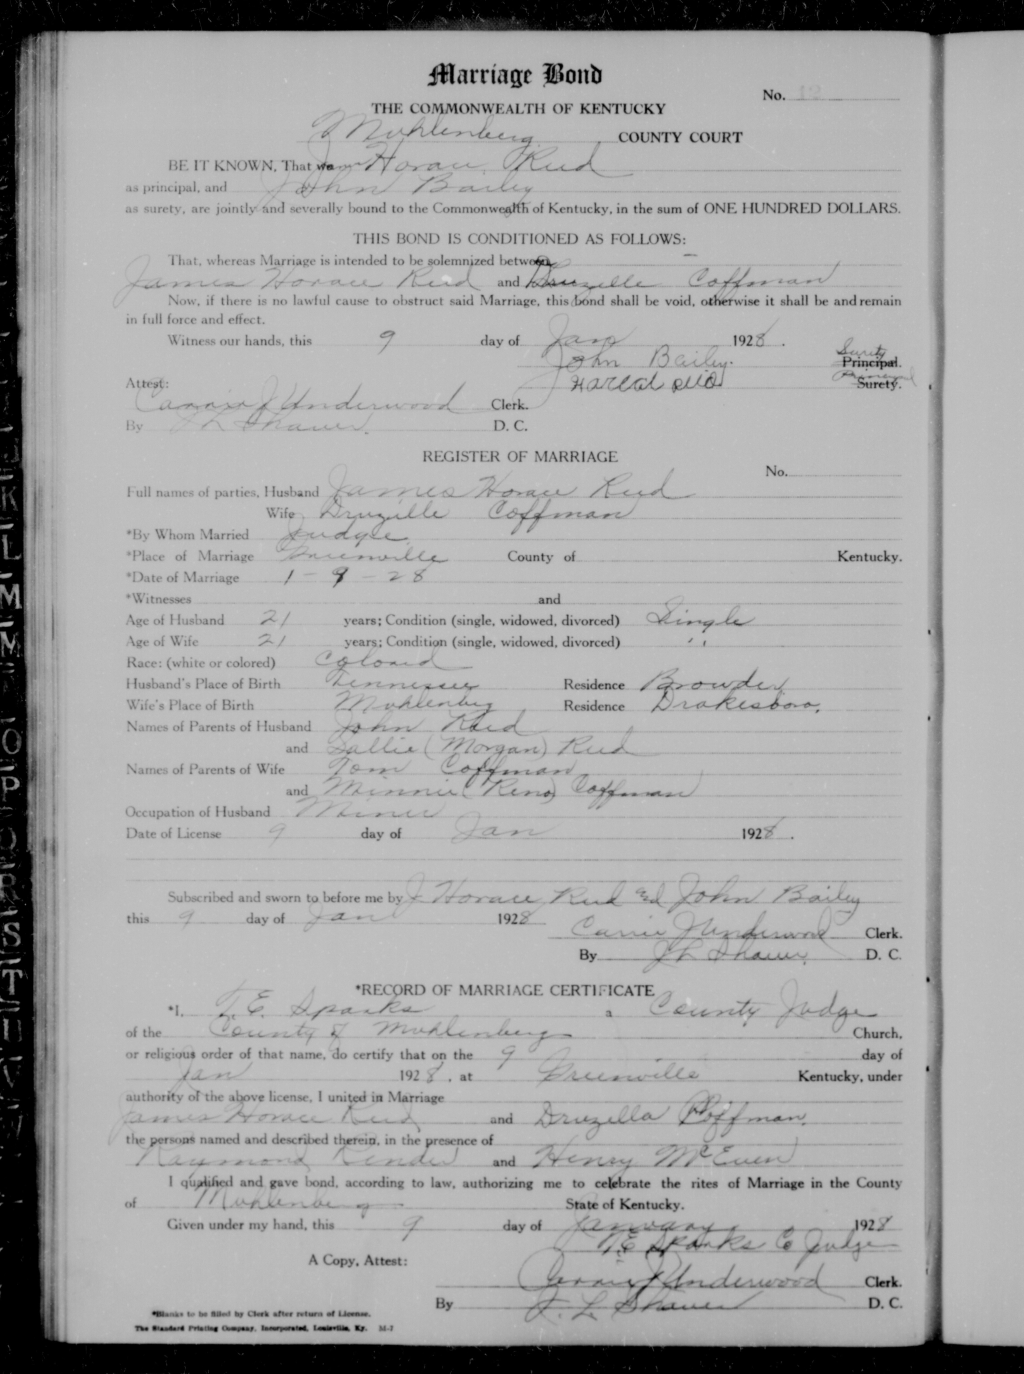 Marriage Bond
No.
THE COMMONWEALTH OF KENTUCKY
Muhlenberg COUNTY COURT
BE IT KNOWN, That we Horace Reid
as principal, and John Bailey
as surety, are jointly and severally bound to the Commonwealth of Kentucky, in the sum of ONE HUNDRED DOLLARS.
THIS BOND IS CONDITIONED AS FOLLOWS:
That, whereas Marriage is intended to be solemnized between
James Horace Reid and Druzille Coffman
Now, if there is no lawful cause to obstruct said Marriage, this bond shall be void, otherwise it shall be and remain
in full force and effect.
Witness our hands, this 9 day of Jan 1928.
John Bailey. Surety Principal.
Principal Surety.
Attest:
Carrie J Underwood Clerk.
By J L Shaver. D. C.
REGISTER OF MARRIAGE
No.
Full names of parties, Husband James Horace Reid
Wife Druzille Coffman
*By Whom Married Judge
*Place of Marriage Greenville County of Kentucky.
*Date of Marriage 1-9-28
*Witnesses and
Age of Husband 21 years; Condition (single, widowed, divorced) Single
Age of Wife 21 years; Condition (single, widowed, divorced) "
Race: (white or colored) Colored
Husband's Place of Birth Tennessee Residence Browder
Wife's Place of Birth Muhlenberg Residence Drakesboro,
Names of Parents of Husband John Reid
and Sallie (Morgan) Reid
Names of Parents of Wife Tom Coffman
and Minnie (Reno) Coffman
Occupation of Husband Miner
Date of License 9 day of Jan 1928.
Subscribed and sworn to before me by J Horace Reid and John Bailey
this 9 day of Jan 1928
Carrie J Underwood Clerk.
By J L Shaver. D. C.
*RECORD OF MARRIAGE CERTIFICATE
*I, T. E. Sparks a County Judge
of the County of Muhlenberg Church,
or religious order of that name, do certify that on the 9 day of
Jan 1928, at Greenville Kentucky, under
authority of the above license, I united in Marriage
James Horace Reid and Druzella Coffman,
the persons named and described therein, in the presence of
Raymond Render and Henry McEuen
I qualified and gave bond, according to law, authorizing me to celebrate the rites of Marriage in the County
of Muhlenberg State of Kentucky.
Given under my hand, this 9 day of January, 1928
T.E. Sparks Co Judge
A Copy, Attest:
Carrie J Underwood Clerk.
By J. L Shaver D. C.
*Blanks to be filled by Clerk after return of License.
The Standard Printing Company, Incorporated, Louisville, Ky. M-7